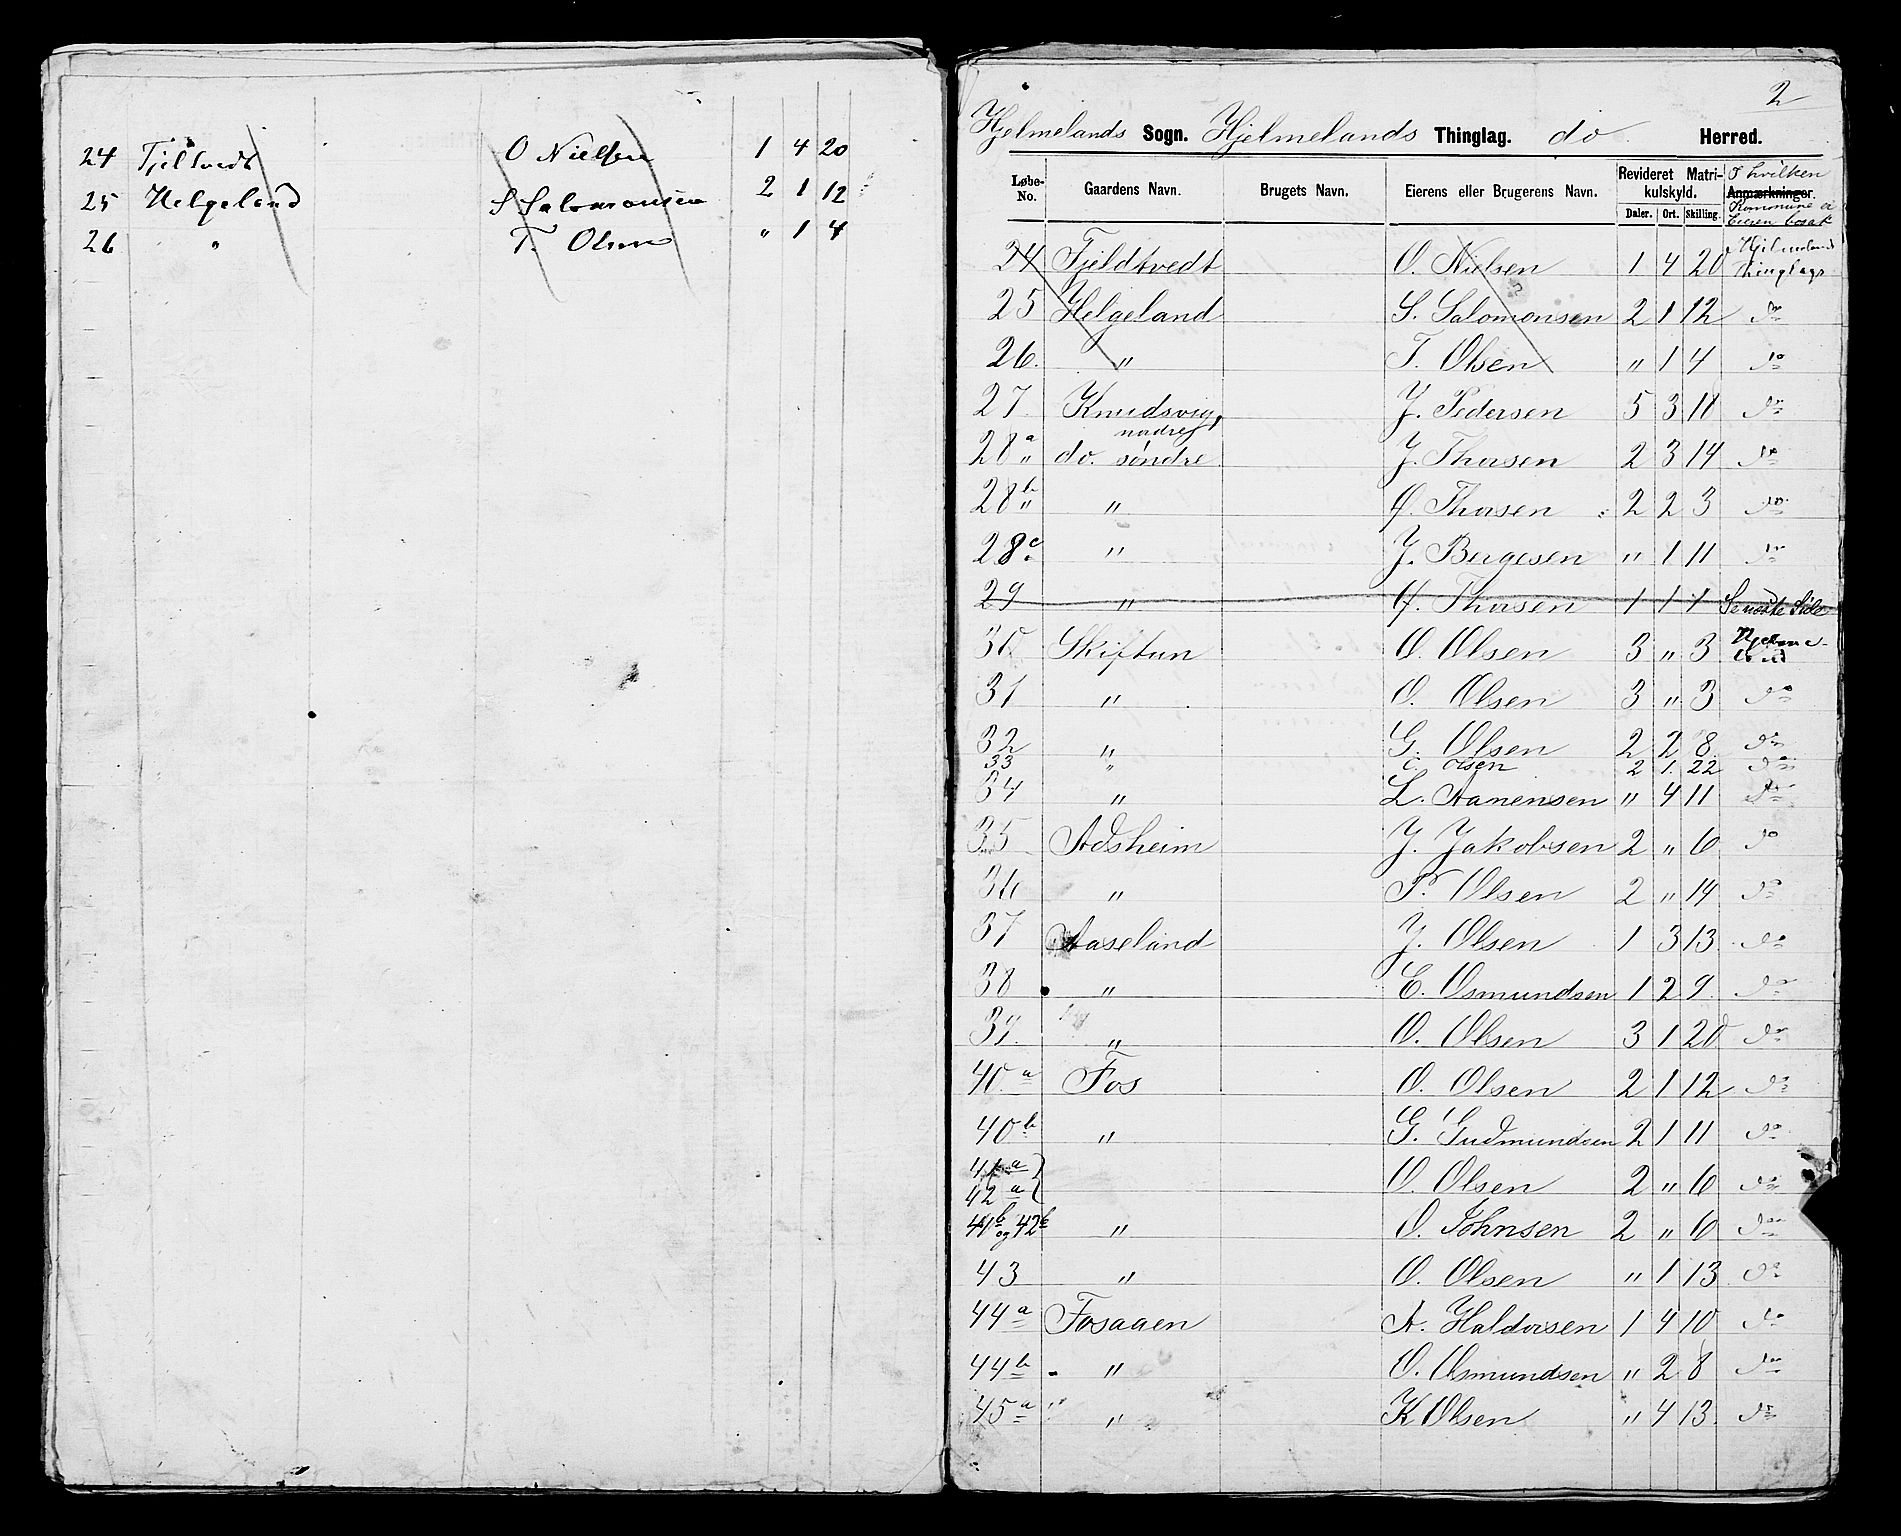 24 Fjeltvedt O Nielsen 1 4 20
25 Helgeland S Salomonsen 2 1 12
26 " T. Olsen " 1 4
2
Hjelmelands Sogn. Hjelmelands Thinglag. do Herred.
Løbe-No. Gaardens Navn. Brugets Navn. Eierens eller Brugerens Navn. Revideret Matrikulskyld. Daler. Ort. Skilling. Anmærkninger. I hvilken Kommune er Eieren bosat
24 Fjeldtvedt O. Nielsen 1 4 20 Hjelmeland Thinglags
25 Helgeland S. Salomonsen 2 1 12 do
26. " T. Olsen " 1 4 do
27 Knudsvig, nordre J. Pedersen 5 3 18 do
28 a do. søndre J. Thorsen 2 3 14 do
28 b " O. Thorsen 2 2 3 do
28 c " J. Bergesen " 1 11 do
29 " O. Thorsen 1 1 1 Se næste Side
30 Skiftun O. Olsen 3 " 3 Hjelmeland
31 " O. Olsen 3 " 3 do
32 " G. Olsen 2 2 8 do
33 " O. Olsen 2 1. 22 do
34 " L. Aanensen " 4 11 do
35 Adsheim J. Jakobsen 2 " 6 do
36 " P. Olsen 2 " 14 do
37 Aaseland J. Olsen 1 3 13 do
38 " E. Osmundsen 1 2 9 do
39. " O. Olsen 3 1 20 do
40 a Fos O. Olsen 2 1 12 do
40 b " G. Gudmundsen 2 1 11 do
41 a
42 a O. Olsen 2 " 6 do
41 b og 42 b " O. Johnsen 2 " 6 do
43 " O. Olsen " 1 13 do
44 a Fosaaen A. Haldorsen 1 4 10 do
44 b " O. Osmundsen " 2 8 do
45 a " K Olsen " 4 13 do